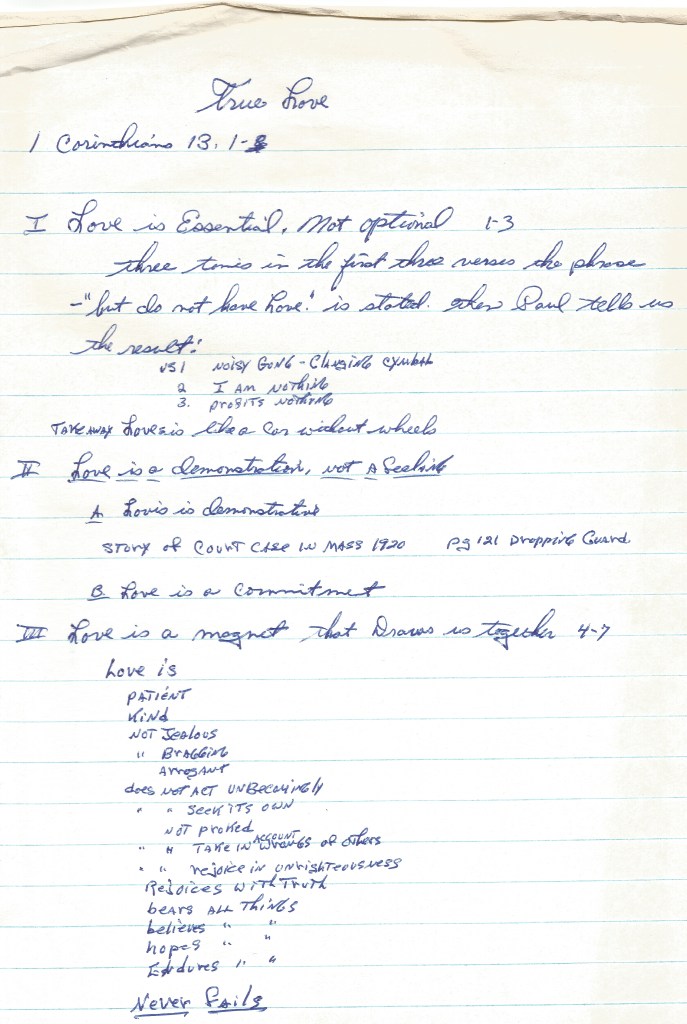 True Love
1 Corinthians 13:1-8
I Love is Essential, Not optional 1-3
three times in the first three verses the phrase
-"but do not have Love." is stated. then Paul tells us
the result:
VS 1 NOISY GONG - Clanging CYMBAL
2 I AM NOTHING
3. profits NOTHING
TAKE AWAY Love is like a Car without wheels
II Love is a demonstration, NOT A Feeling
A Lovis is demonstrative
STORY of COURT CASE IN MASS 1920 Pg 121 Dropping Guard.
B. Love is a Commitment
III Love is a magnet that Draws us together 4-7
Love is
PATIENT
KIND
NOT JEALOUS
" BRAGGING
ARROGANT
does NOT ACT UNBECOMINGLY
" " SEEK ITS OWN
NOT PROKED
" " TAKE IN ACCOUNT WRONGS OF OTHERS
" " rejoice in UNRIGHTEOUSNESS
REJOICES WITH TRUTH
bears ALL THINGS
believes " "
hopes " "
Endures " "
Never Fails